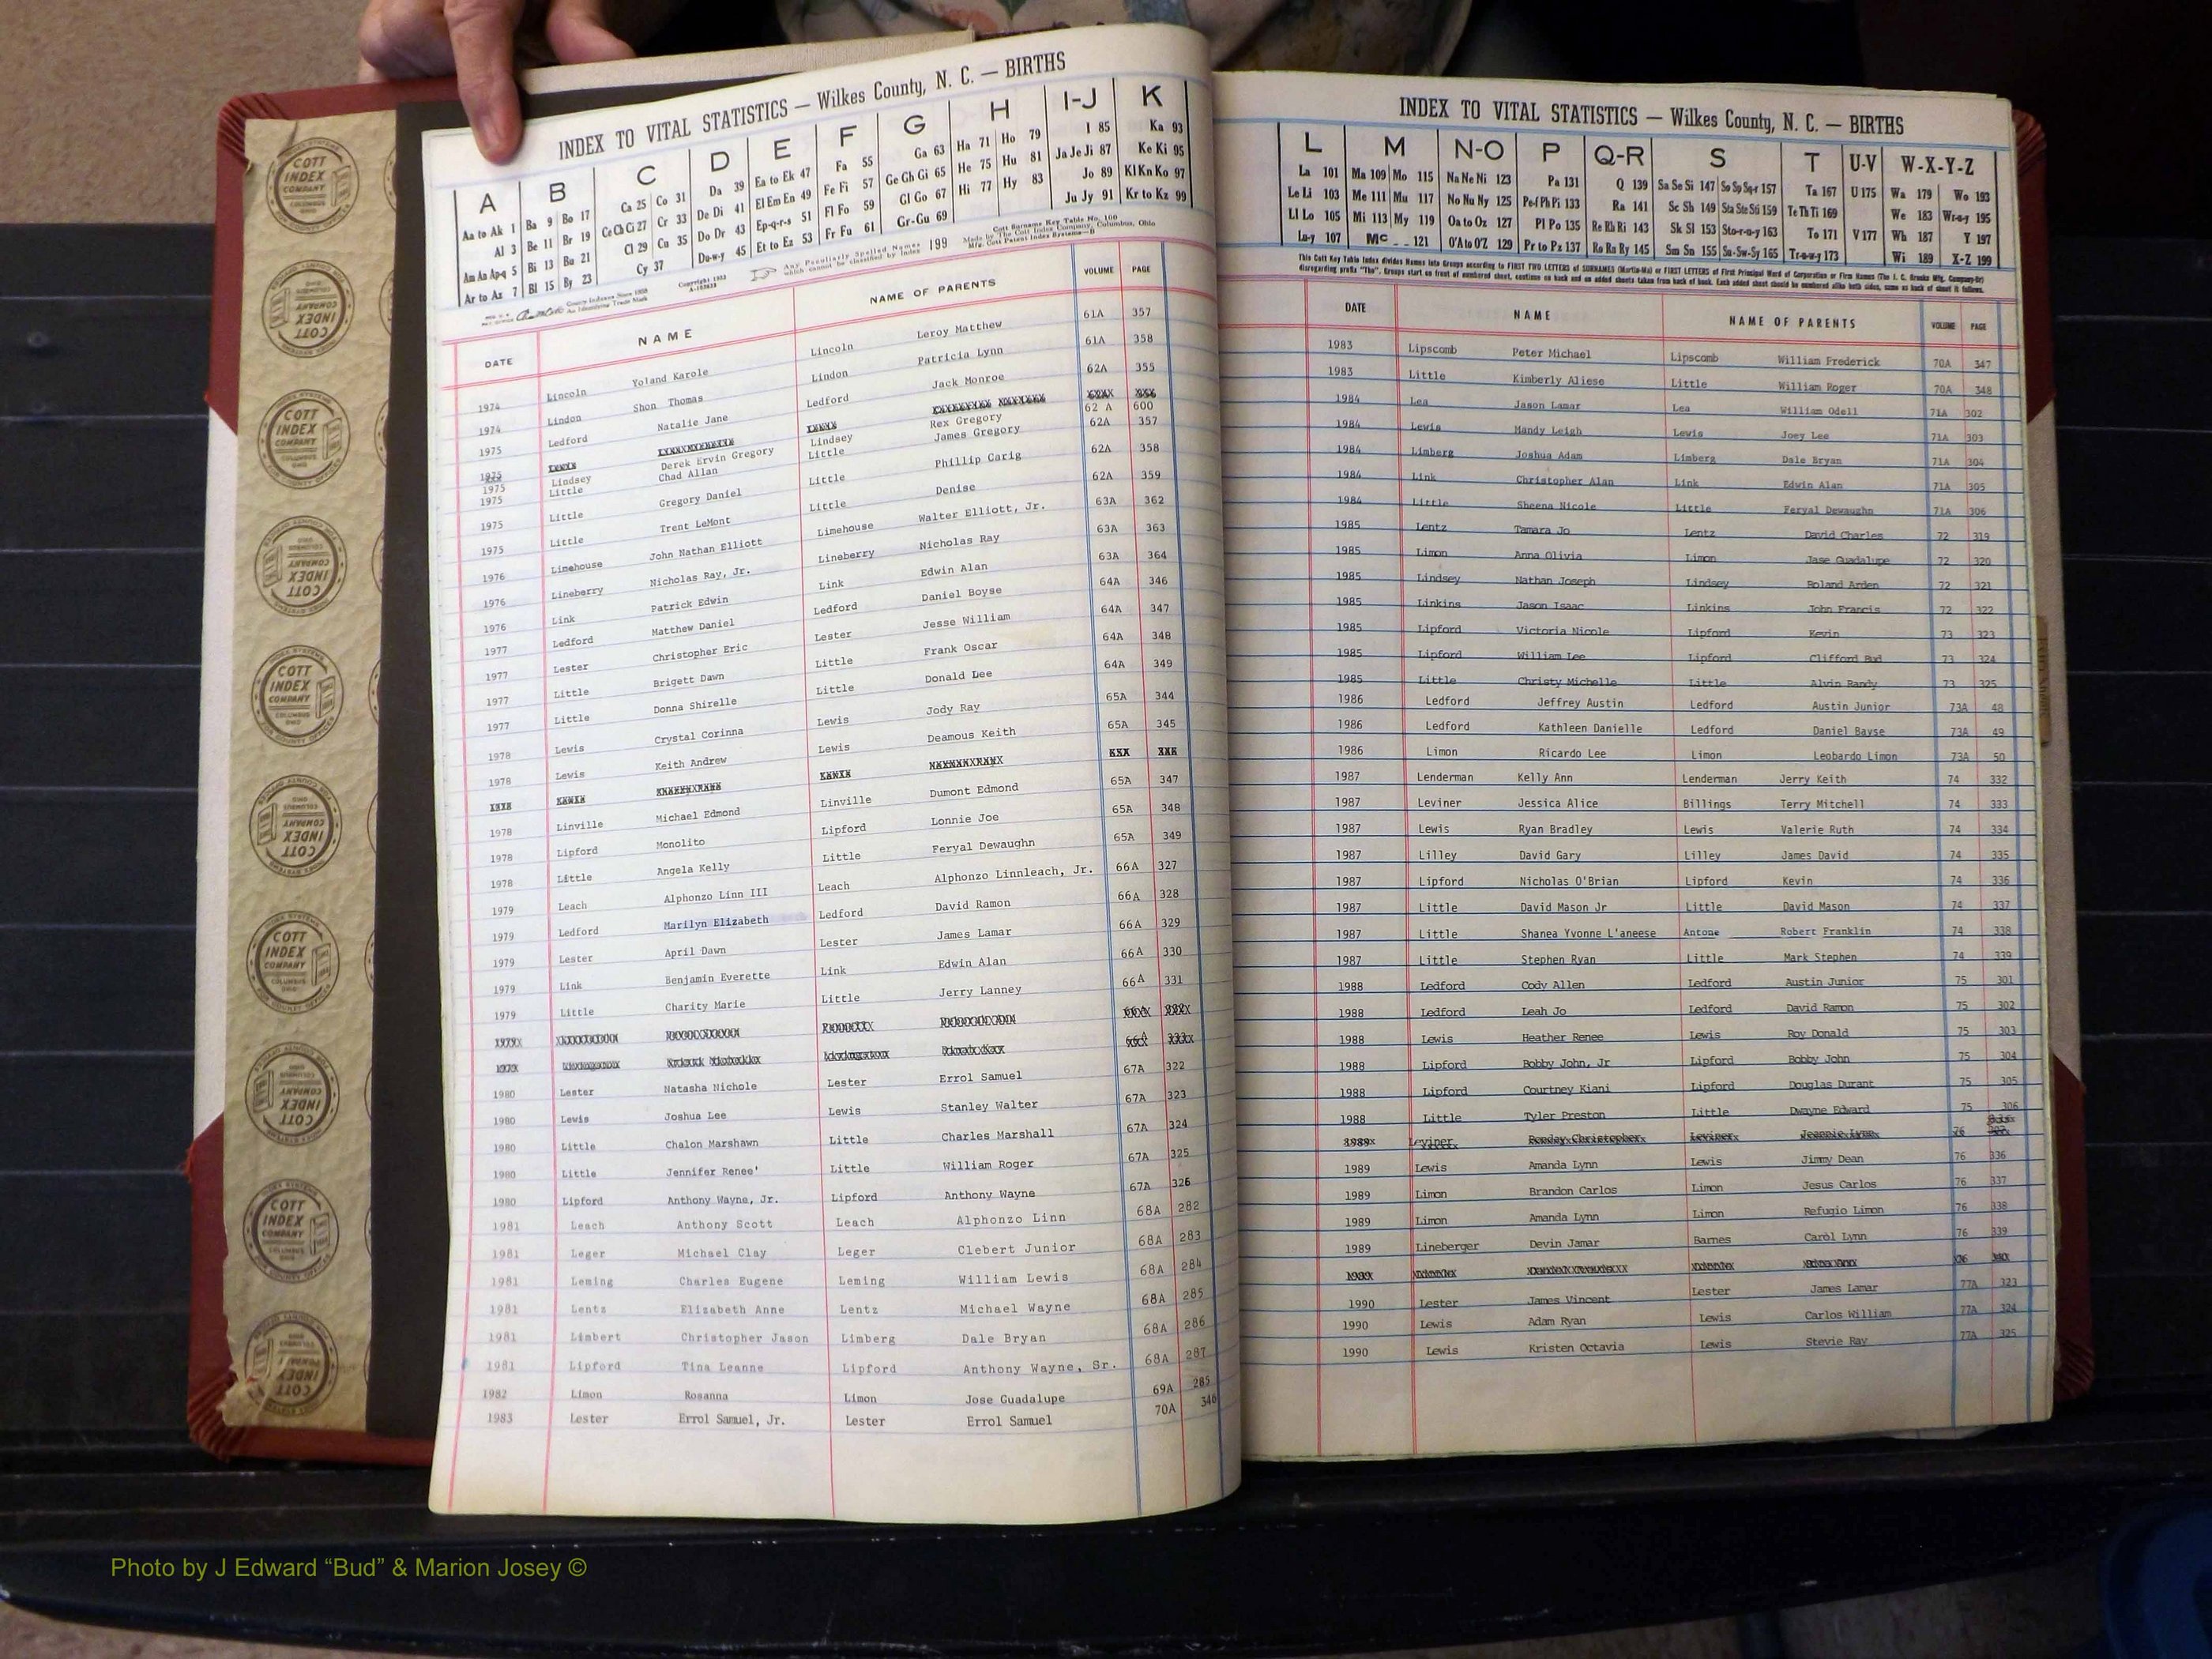 INDEX TO VITAL STATISTICS — Wilkes County, N. C. — BIRTHS
A B C D E F G H I-J K
Aa to Ak 1 Ba 9 Bo 17 Ca 25 Co 31 Da 39 Ea to Ek 47 Fa 55 Ga 63 Ha 71 Ho 79 I 85 Ka 93
Al 3 Be 11 Br 19 Ce Ch Ci 27 Cr 33 De Di 41 El Em En 49 Fe Fi 57 Ge Gh Gi 65 He 75 Hu 81 Ja Je Ji 87 Ke Ki 95
Am An Ap-q 5 Bi 13 Bu 21 Cl 29 Cu 35 Do Dr 43 Ep-q-r-s 51 Fl Fo 59 Gl Go 67 Hi 77 Hy 83 Jo 89 Kl Kn Ko 97
Ar to Az 7 Bl 15 By 23 Cy 37 Du-w-y 45 Et to Ez 53 Fr Fu 61 Gr-Gu 69 Ju Jy 91 Kr to Kz 99
Any Peculiarly Spelled Names which cannot be classified by Index 199
Cott Surname Key Table No. 100
Made by The Cott Index Company, Columbus, Ohio
Mfg. Cott Patent Index Systems—B
DATE NAME NAME OF PARENTS VOLUME PAGE
1974 Lincoln Yoland Karole Lincoln Leroy Matthew 61A 357
1974 Lindon Shon Thomas Lindon Patricia Lynn 61A 358
1975 Ledford Natalie Jane Ledford Jack Monroe 62A 355
1975 Lindsey Derek Ervin Gregory Lindsey Rex Gregory 62 A 600
1975 Little Chad Allan Little James Gregory 62A 357
1975 Little Gregory Daniel Little Phillip Carig 62A 358
1975 Little Trent LeMont Little Denise 62A 359
1976 Limehouse John Nathan Elliott Limehouse Walter Elliott, Jr. 63A 362
1976 Lineberry Nicholas Ray, Jr. Lineberry Nicholas Ray 63A 363
1976 Link Patrick Edwin Link Edwin Alan 63A 364
1977 Ledford Matthew Daniel Ledford Daniel Boyse 64A 346
1977 Lester Christopher Eric Lester Jesse William 64A 347
1977 Little Brigett Dawn Little Frank Oscar 64A 348
1977 Little Donna Shirelle Little Donald Lee 64A 349
1978 Lewis Crystal Corinna Lewis Jody Ray 65A 344
1978 Lewis Keith Andrew Lewis Deamous Keith 65A 345
1978 Linville Michael Edmond Linville Dumont Edmond 65A 347
1978 Lipford Monolito Lipford Lonnie Joe 65A 348
1978 Little Angela Kelly Little Feryal Dewaughn 65A 349
1979 Leach Alphonzo Linn III Leach Alphonzo Linnleach, Jr. 66A 327
1979 Ledford Marilyn Elizabeth Ledford David Ramon 66A 328
1979 Lester April Dawn Lester James Lamar 66A 329
1979 Link Benjamin Everette Link Edwin Alan 66A 330
1979 Little Charity Marie Little Jerry Lanney 66A 331
1980 Lester Natasha Nichole Lester Errol Samuel 67A 322
1980 Lewis Joshua Lee Lewis Stanley Walter 67A 323
1980 Little Chalon Marshawn Little Charles Marshall 67A 324
1980 Little Jennifer Renee' Little William Roger 67A 325
1980 Lipford Anthony Wayne, Jr. Lipford Anthony Wayne 67A 326
1981 Leach Anthony Scott Leach Alphonzo Linn 68A 282
1981 Leger Michael Clay Leger Clebert Junior 68A 283
1981 Leming Charles Eugene Leming William Lewis 68A 284
1981 Lentz Elizabeth Anne Lentz Michael Wayne 68A 285
1981 Limbert Christopher Jason Limberg Dale Bryan 68A 286
1981 Lipford Tina Leanne Lipford Anthony Wayne, Sr. 68A 287
1982 Limon Rosanna Limon Jose Guadalupe 69A 285
1983 Lester Errol Samuel, Jr. Lester Errol Samuel 70A 346
INDEX TO VITAL STATISTICS — Wilkes County, N. C. — BIRTHS
L M N-O P Q-R S T U-V W-X-Y-Z
La 101 Ma 109 Mo 115 Na Ne Ni 123 Pa 131 Q 139 Sa Se Si 147 So Sp Sq-r 157 Ta 167 U 175 Wa 179 Wo 193
Le Li 103 Me 111 Mu 117 No Nu Ny 125 Pe-f Ph Pi 133 Ra 141 Sc Sh 149 Sta Ste Sti 159 Te Th Ti 169 We 183 Wr-u-y 195
Ll Lo 105 Mi 113 My 119 Oa to Oz 127 Pl Po 135 Re Rh Ri 143 Sk Sl 153 Sto-r-u-y 163 To 171 V 177 Wh 187 Y 197
Lu-y 107 Mc 121 O'A to O'Z 129 Pr to Pz 137 Ro Ru Ry 145 Sm Sn 155 Su-Sw-Sy 165 Tr-u-w-y 173 Wi 189 X-Z 199
This Cott Key Table Index divides Names into Groups according to FIRST TWO LETTERS of SURNAMES (Martin-Ma) or FIRST LETTERS of First Principal Word of Corporation or Firm Names (The J. C. Brooks Mfg. Company-Br)
disregarding prefix "The". Groups start on front of numbered sheet, continue on back and on added sheets taken from back of book. Each added sheet should be numbered alike both sides, same as back of sheet it follows.
DATE NAME NAME OF PARENTS VOLUME PAGE
1983 Lipscomb Peter Michael Lipscomb William Frederick 70A 347
1983 Little Kimberly Aliese Little William Roger 70A 348
1984 Lea Jason Lamar Lea William Odell 71A 302
1984 Lewis Mandy Leigh Lewis Joey Lee 71A 303
1984 Limberg Joshua Adam Limberg Dale Bryan 71A 304
1984 Link Christopher Alan Link Edwin Alan 71A 305
1984 Little Sheena Nicole Little Feryal Dewaughn 71A 306
1985 Lentz Tamara Jo Lentz David Charles 72 319
1985 Limon Anna Olivia Limon Jase Guadalupe 72 320
1985 Lindsey Nathan Joseph Lindsey Roland Arden 72 321
1985 Linkins Jason Isaac Linkins John Francis 72 322
1985 Lipford Victoria Nicole Lipford Kevin 73 323
1985 Lipford William Lee Lipford Clifford Bud 73 324
1985 Little Christy Michelle Little Alvin Randy 73 325
1986 Ledford Jeffrey Austin Ledford Austin Junior 73A 48
1986 Ledford Kathleen Danielle Ledford Daniel Bayse 73A 49
1986 Limon Ricardo Lee Limon Leobardo Limon 73A 50
1987 Lenderman Kelly Ann Lenderman Jerry Keith 74 332
1987 Leviner Jessica Alice Billings Terry Mitchell 74 333
1987 Lewis Ryan Bradley Lewis Valerie Ruth 74 334
1987 Lilley David Gary Lilley James David 74 335
1987 Lipford Nicholas O'Brian Lipford Kevin 74 336
1987 Little David Mason Jr Little David Mason 74 337
1987 Little Shanea Yvonne L'aneese Antone Robert Franklin 74 338
1987 Little Stephen Ryan Little Mark Stephen 74 339
1988 Ledford Cody Allen Ledford Austin Junior 75 301
1988 Ledford Leah Jo Ledford David Ramon 75 302
1988 Lewis Heather Renee Lewis Roy Donald 75 303
1988 Lipford Bobby John, Jr Lipford Bobby John 75 304
1988 Lipford Courtney Kiani Lipford Douglas Durant 75 305
1988 Little Tyler Preston Little Dwayne Edward 75 306
1989 Leviner Christopher Leviner Jeannie Lynn 76
1989 Lewis Amanda Lynn Lewis Jimmy Dean 76 336
1989 Limon Brandon Carlos Limon Jesus Carlos 76 337
1989 Limon Amanda Lynn Limon Refugio Limon 76 338
1989 Lineberger Devin Jamar Barnes Carol Lynn 76 339
1990 Lester James Vincent Lester James Lamar 77A 323
1990 Lewis Adam Ryan Lewis Carlos William 77A 324
1990 Lewis Kristen Octavia Lewis Stevie Ray 77A 325
COTT INDEX COMPANY COLUMBUS OHIO
Photo by J Edward “Bud” & Marion Josey ©